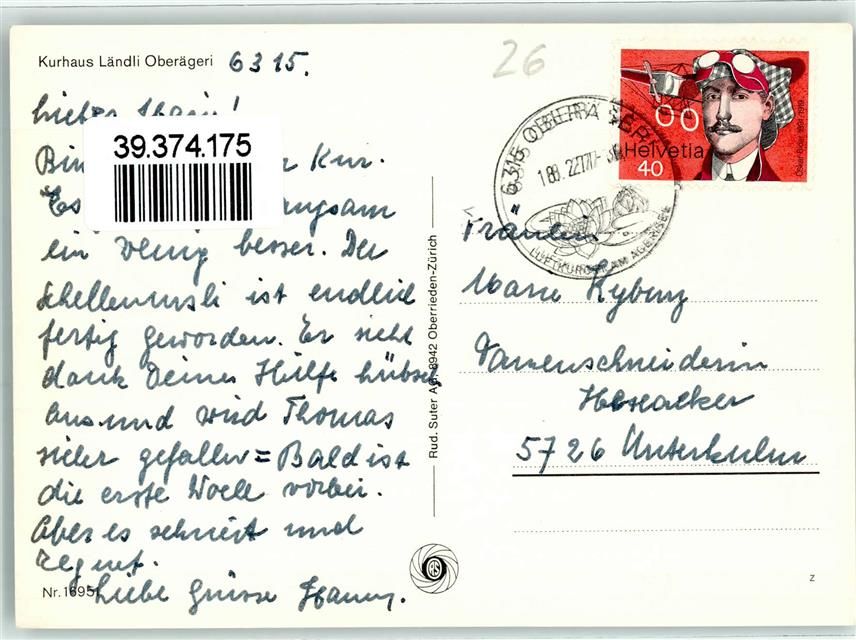 Kurhaus Ländli Oberägeri 6315.
26
39.374.175
Bin Kur.
Es langsam
ein wenig besser. Der
Schellenursli ist endlich
fertig geworden. Er sieht
dank Deiner Hülfe hübsch
aus und wird Thomas
sicher gefallen = Bald ist
die erste Woche vorbei.
Aber es schneit und
regnet.
Liebe Grüsse Hanny.
Nr. 16951
Rud. Suter AG. 8942 Oberrieden-Zürich
6315 OBERÄGERI
LUFTKURORT AM AEGERISEE
Helvetia
40
Fräulein
Marie Kyburz
Damenschneiderin
5726 Unterkulm
z